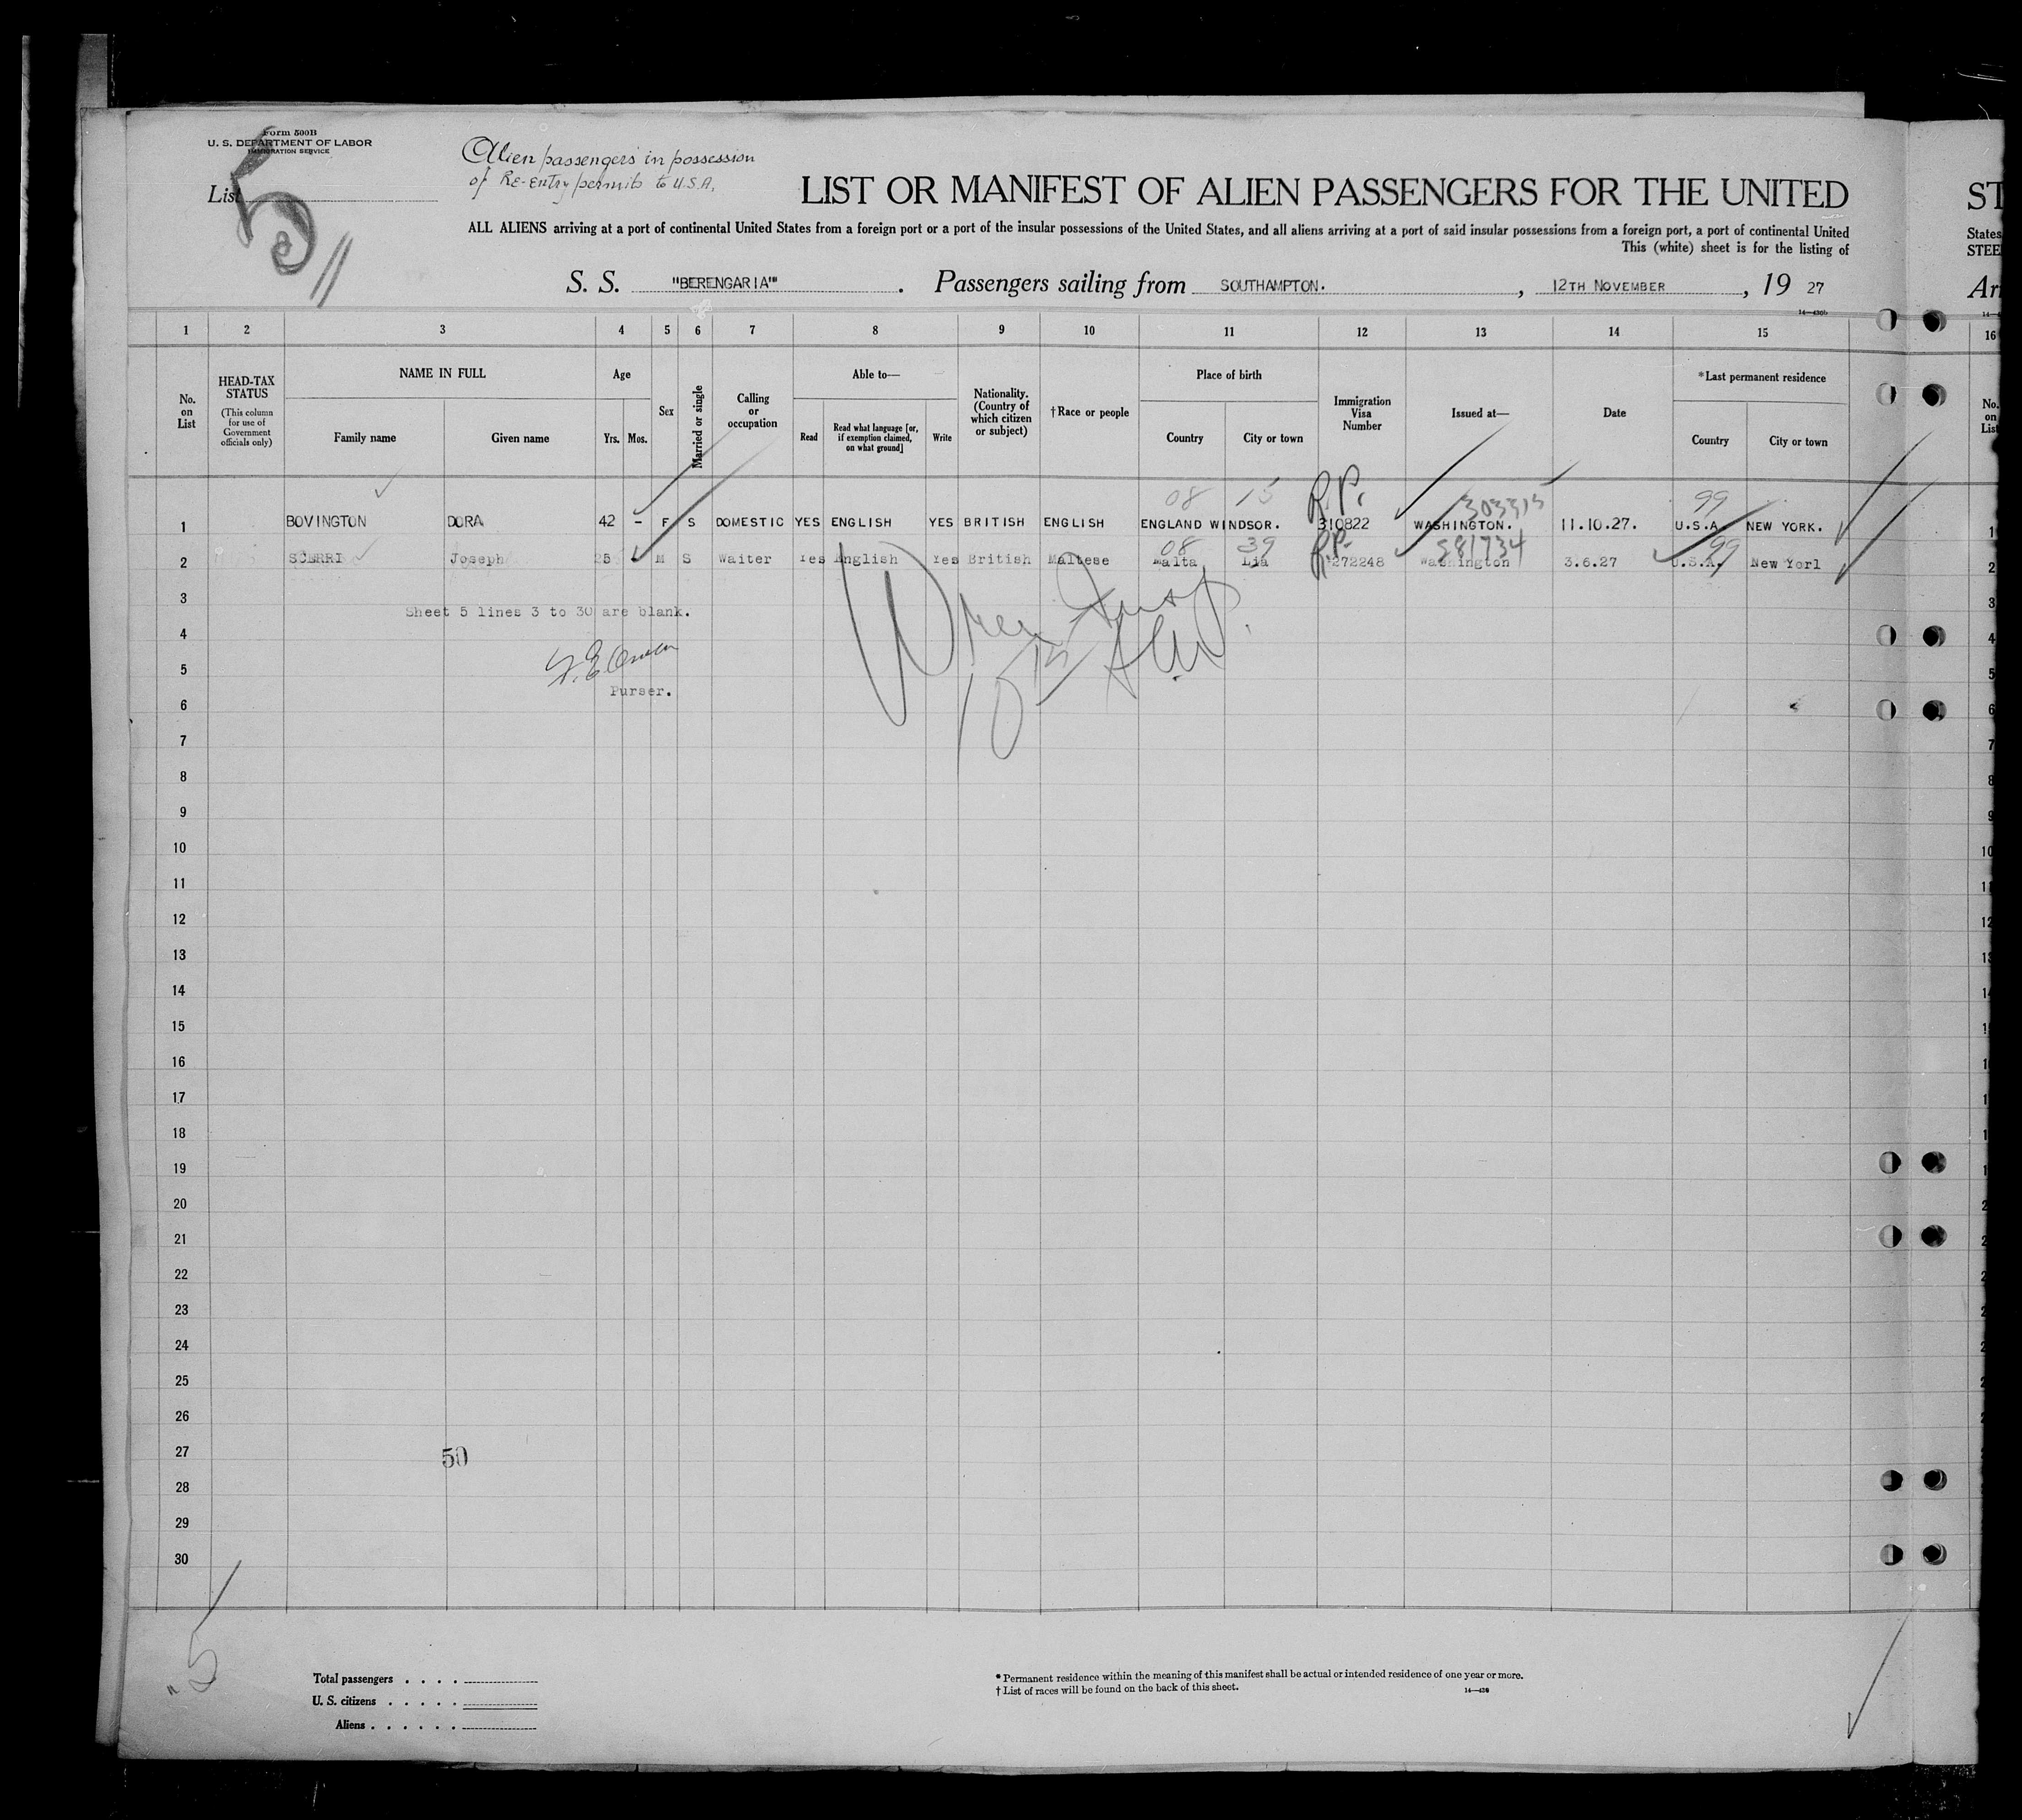 Form 500B
U. S. DEPARTMENT OF LABOR
IMMIGRATION SERVICE
List
5
Alien passengers in possession
of RE-entry permits to U.S.A.
LIST OR MANIFEST OF ALIEN PASSENGERS FOR THE UNITED
ST
ALL ALIENS arriving at a port of continental United States from a foreign port or a port of the insular possessions of the United States, and all aliens arriving at a port of said insular possessions from a foreign port, a port of continental United
States
This (white) sheet is for the listing of
STEE
S. S. "BERENGARIA" . Passengers sailing from SOUTHAMPTON. , 12TH NOVEMBER , 19 27
Arr
1 2 3 4 5 6 7 8 9 10 11 12 13 14 15 16
No. on List
HEAD-TAX STATUS (This column for use of Government officials only)
NAME IN FULL
Family name
Given name
Age
Yrs. Mos.
Sex
Married or single
Calling or occupation
Able to—
Read
Read what language [or, if exemption claimed, on what ground]
Write
Nationality. (Country of which citizen or subject)
†Race or people
Place of birth
Country
City or town
Immigration Visa Number
Issued at—
Date
*Last permanent residence
Country
City or town
No. on List
08 15 R.P. 303315 99
1 BOVINGTON DORA 42 - F S DOMESTIC YES ENGLISH YES BRITISH ENGLISH ENGLAND WINDSOR. 310822 WASHINGTON. 11.10.27. U.S.A. NEW YORK. 1
08 39 R.P. 99
2 SCERRI Joseph 25 - M S Waiter Yes English Yes British Maltese Malta Lia 272248 Washington 3.6.27 U.S.A. New Yorl 2
3 Sheet 5 lines 3 to 30 are blank. 3
4
5
Purser.
6
7
8
9
10
11
12
13
14
15
16
17
18
19
20
21
22
23
24
25
26
27 50
28
29
30
5
Total passengers . . . .
U. S. citizens . . . . .
Aliens . . . . . .
* Permanent residence within the meaning of this manifest shall be actual or intended residence of one year or more.
† List of races will be found on the back of this sheet.